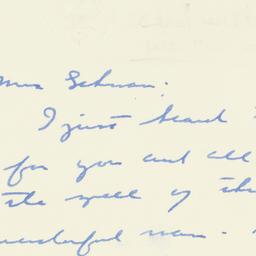 Mrs Schwan:
I just heard
for you and all
the spell of the
wonderful man.